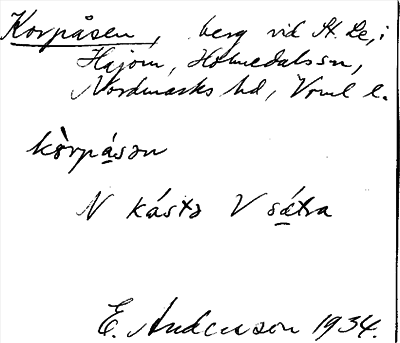 Korpåsen, berg vid St. Le, i
Häjom, Holmedals sn,
Nordmarks hd, Vrml l.
kòrpása̱n
N kásta V sá̱tra
E. Andersson 1934.